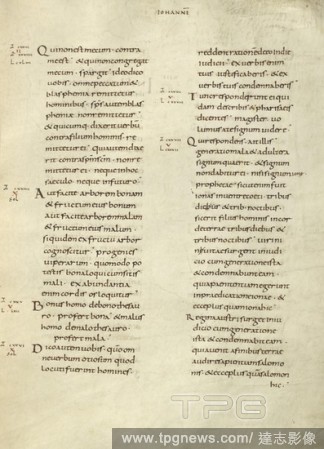 IOHANNI
Qui non est mecum · contra
me est · & qui non congregat
mecum · spargit · ideo dico
vobis · omne peccatum &
blasphemia remittetur
hominibus · sp̄s autem blas
phemia · non remittetur ·
& quicumq; dixerit verbum
contra filium hominis · re
mittetur ei · qui autem dixe
rit contra sp̄m s̄c̄m · non re
mittetur ei · neque in hoc
saeculo · neque in futuro ·
Aut facite arborem bonam
& fructum eius bonum
aut facite arborem malam
& fructum eius malum ·
siquidem ex fructu arbor
cognoscitur · progenies
viperarum · quomodo po
testis bona loqui cum sitis
mali · ex abundantia
enim cordis os loquitur
Bonus homo de bono thesau
ro · profert bona · & malus
homo de malo thesauro ·
profert mala ·
Dico autem vobis · quō om
ne verbum otiosum quod
locuti fuerint homines ·
reddent rationem de eo in die
iudicii · ex verbis enim
tuis iustificaberis · & ex
verbis tuis condemnaberis
Tunc responderunt ei qui
dam de scribis & pharisaeis
dicentes · magister vo
lumus a te signum videre ·
Qui respondens ait illis
generatio mala & adultera
signum quaerit · & signum
non dabitur ei · nisi signum ionae
prophetae · sicut enim fuit
ionas in ventre ceti · tribus
diebus & trib: noctibus ·
sic erit filius hominis in cor
de terrae · tribus diebus &
tribus noctibus · viri ni
nivitae surgent in iudi
cio cum generatione ista
& condemnabunt eam ·
quia paenitentiam egerunt
in praedicatione ionae · &
ecce plus quam iona hic
Regina austri surget in iu
dicio cum generatione
ista & condemnabit eam ·
quia venit a finibus terrae
audire sapientiam salomo
nis · & ecce plus quam salomon
hic ·
TPG
www.tpgnews.com / 達志影像